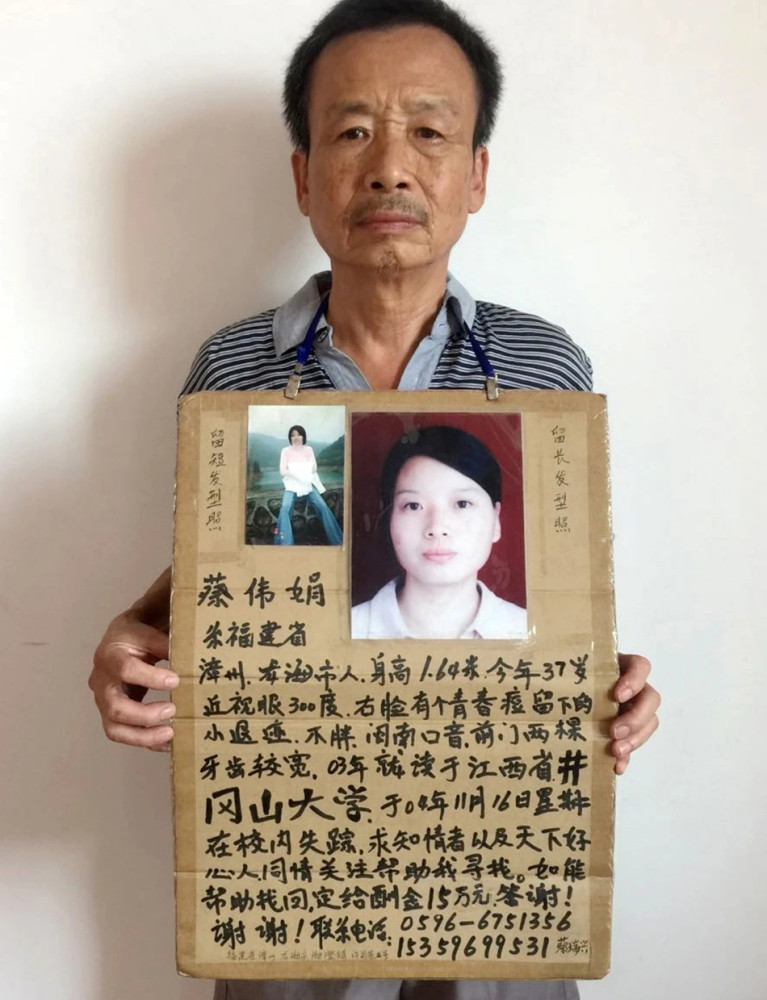 留短发型照
留长发型照
蔡伟娟
系福建省
漳州.龙海市人.身高1.64米.今年37岁
近视眼300度.右脸有个青春痘留下的
小退迹.不胖.闽南口音.前门两棵
牙齿较宽.03年就读于江西省井
冈山大学.于04年11月16日星期
在校内失踪.求知情者以及天下好
心人.同情关注帮助我寻找。如能
帮助找回,定给酬金15万元答谢!
谢谢!联系电话:0596-6751356
15359699531 蔡瑞兴
福建省漳州 龙海市 海澄镇